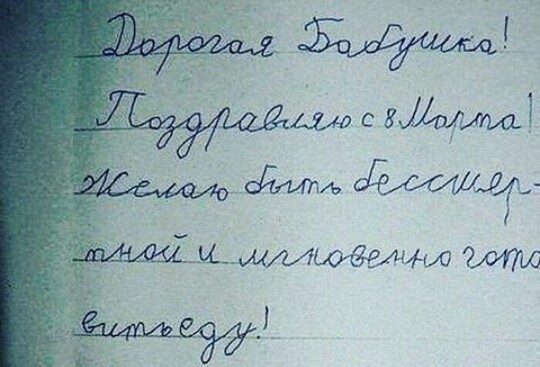 Дорогая Бабушка!
Поздравляю с 8 Марта!
Желаю быть бессмер-
тной и мгновенно гото
витьеду!